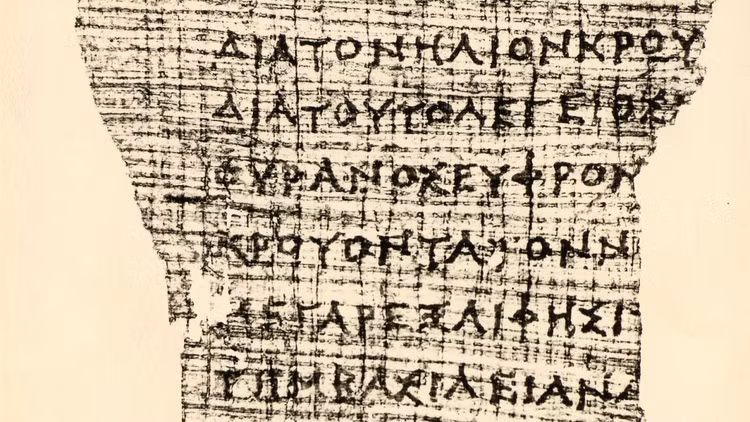 ΔΙΑΤΟΝΗΛΙΟΝΚΡΟΥ
ΔΙΑΤΟΥΤΟΛΕΓΕΙΟΣ
ΟΥΡΑΝΟΣΕΥΦΡΟΝ
ΚΡΟΥΟΝΤΑΤΟΝΝ
ΓΑΡΕΞΑΙΦΗΣΙ
ΤΗΜΒΑΣΙΛΕΙΑΝ